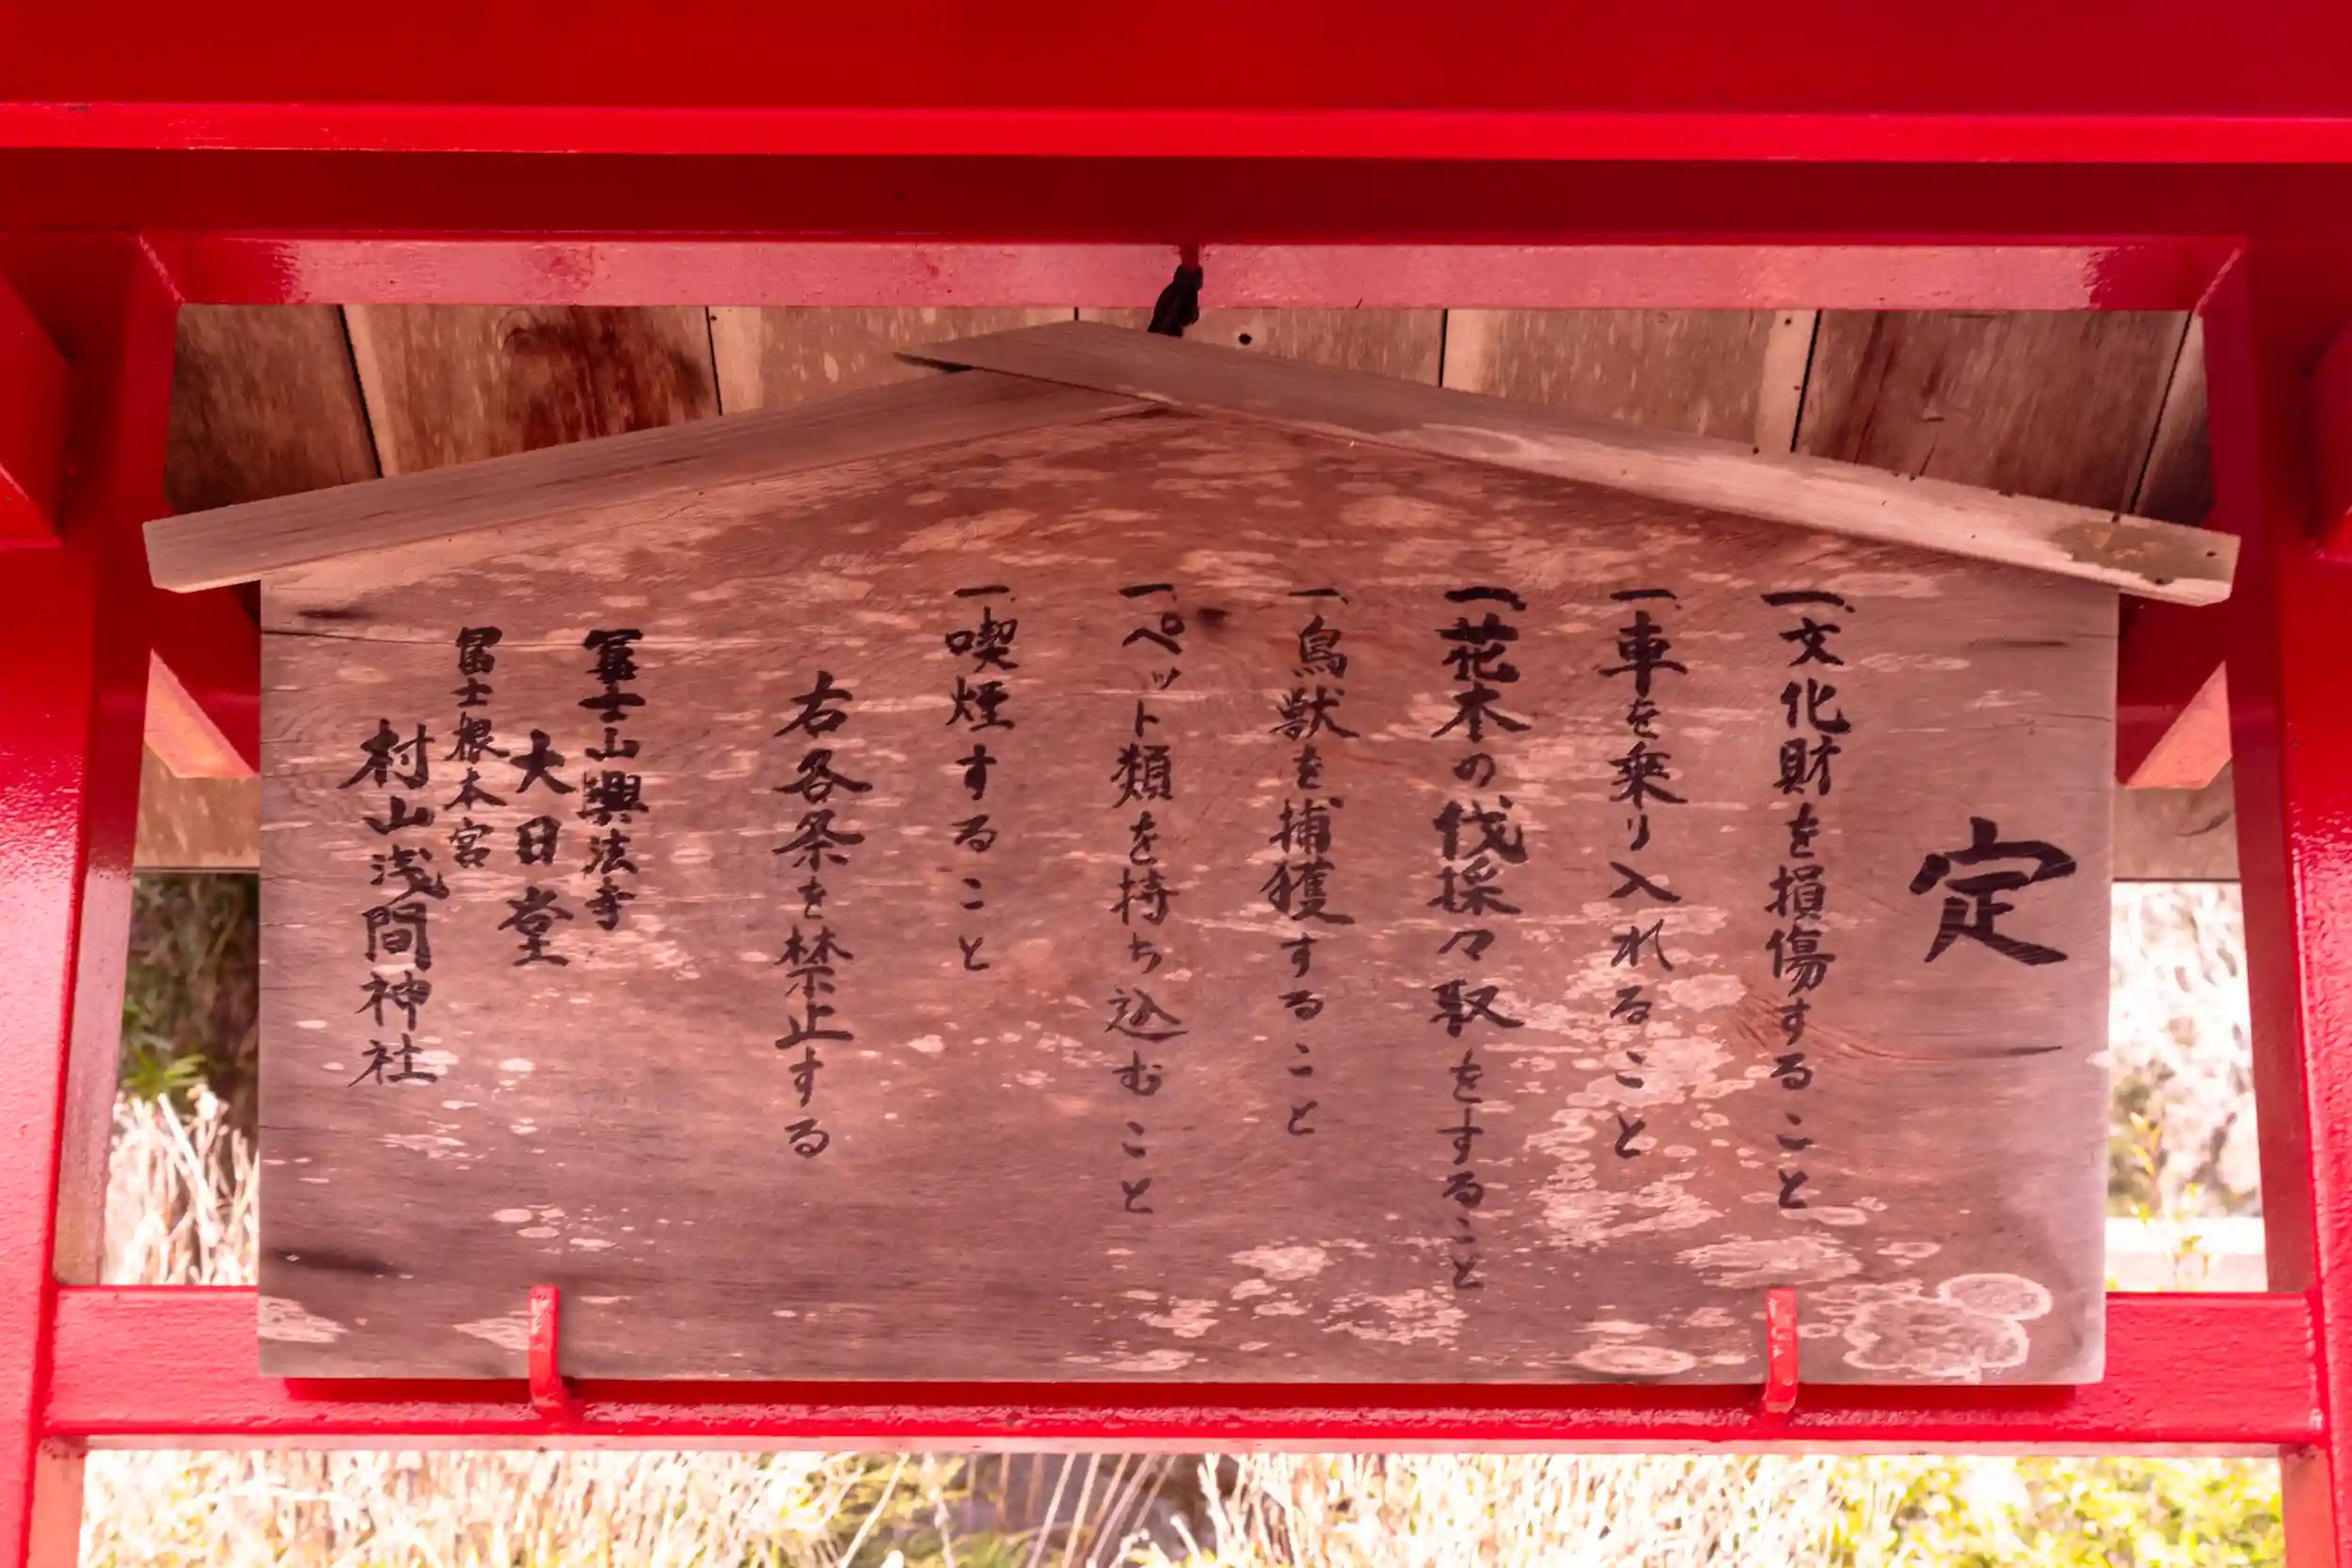 定
一、文化財を損傷すること
一、車を乗り入れること
一、花木の伐採々取をすること
一、鳥獣を捕獲すること
一、ペット類を持ち込むこと
一、喫煙すること
右各条を禁止する
冨士山興法寺
大日堂
冨士根本宮
村山浅間神社